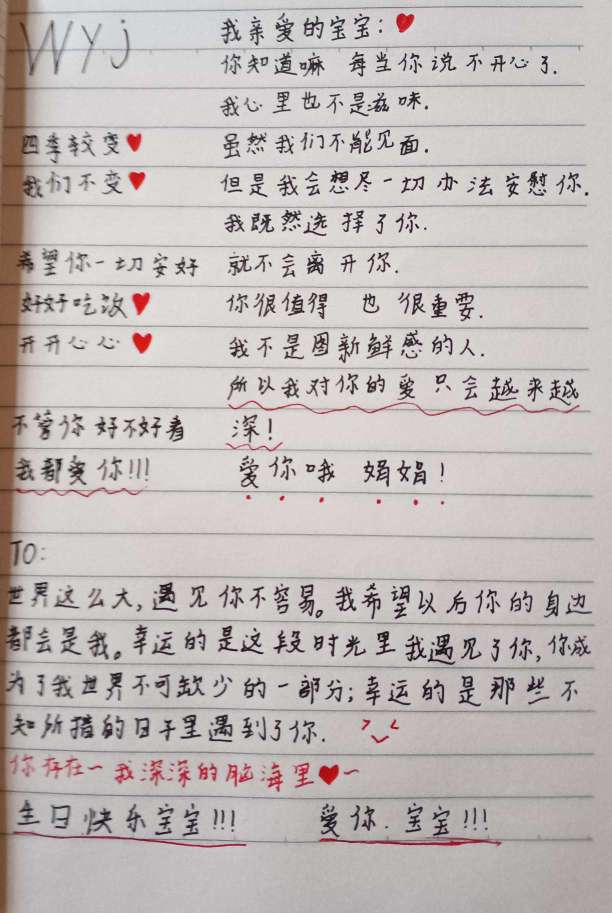 WYJ
我亲爱的宝宝:❤
你知道嘛 每当你说不开心了.
我心里也不是滋味.
四季较变❤
虽然我们不能见面.
我们不变❤
但是我会想尽一切办法安慰你.
我既然选择了你.
希望你一切安好
就不会离开你.
好好吃饭❤
你很值得 也很重要.
开开心心❤
我不是图新鲜感的人.
所以我对你的爱只会越来越
不管你好不好看
深!
我都爱你!!!
爱你哦 娟娟!
TO:
世界这么大,遇见你不容易。我希望以后你的身边
都会是我。幸运的是这段时光里我遇见了你,你成
为了我世界不可缺少的一部分;幸运的是那些不
知所措的日子里遇到了你.
你存在~我深深的脑海里❤~
生日快乐宝宝!!! 爱你.宝宝!!!